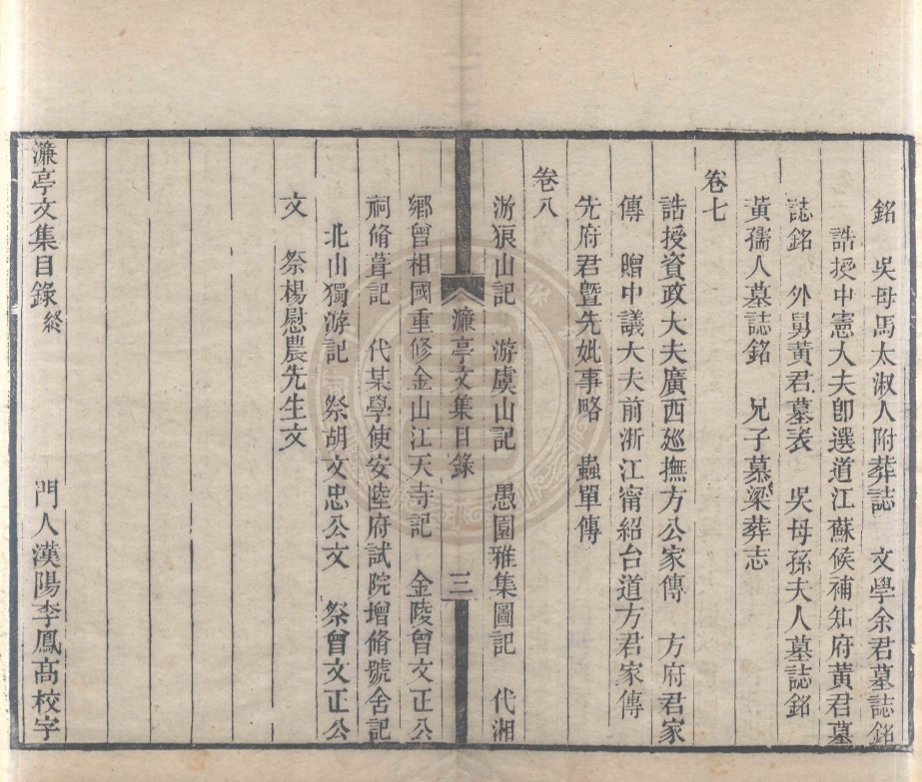 銘　吳母馬太淑人附葬誌　文學余君墓誌銘
誥授中憲大夫卽選道江蘇候補知府黃君墓
誌銘　外舅黃君墓表　吳母孫夫人墓誌銘
黃孺人墓誌銘　兄子慕梁葬志
卷七
誥授資政大夫廣西廵撫方公家傳　方府君家
傳　贈中議大夫前浙江甯紹台道方君家傳
先府君曁先妣事略　蟲單傳
卷八
游狼山記　游虞山記　愚園雅集圖記　代湘
濂亭文集目錄　三
鄕曾相國重修金山江天寺記　金陵曾文正公
祠脩葺記　代某學使安陸府試院增脩號舍記
北山獨游記　祭胡文忠公文　祭曾文正公
文　祭楊慰農先生文
濂亭文集目錄終　門人漢陽李鳳高校字